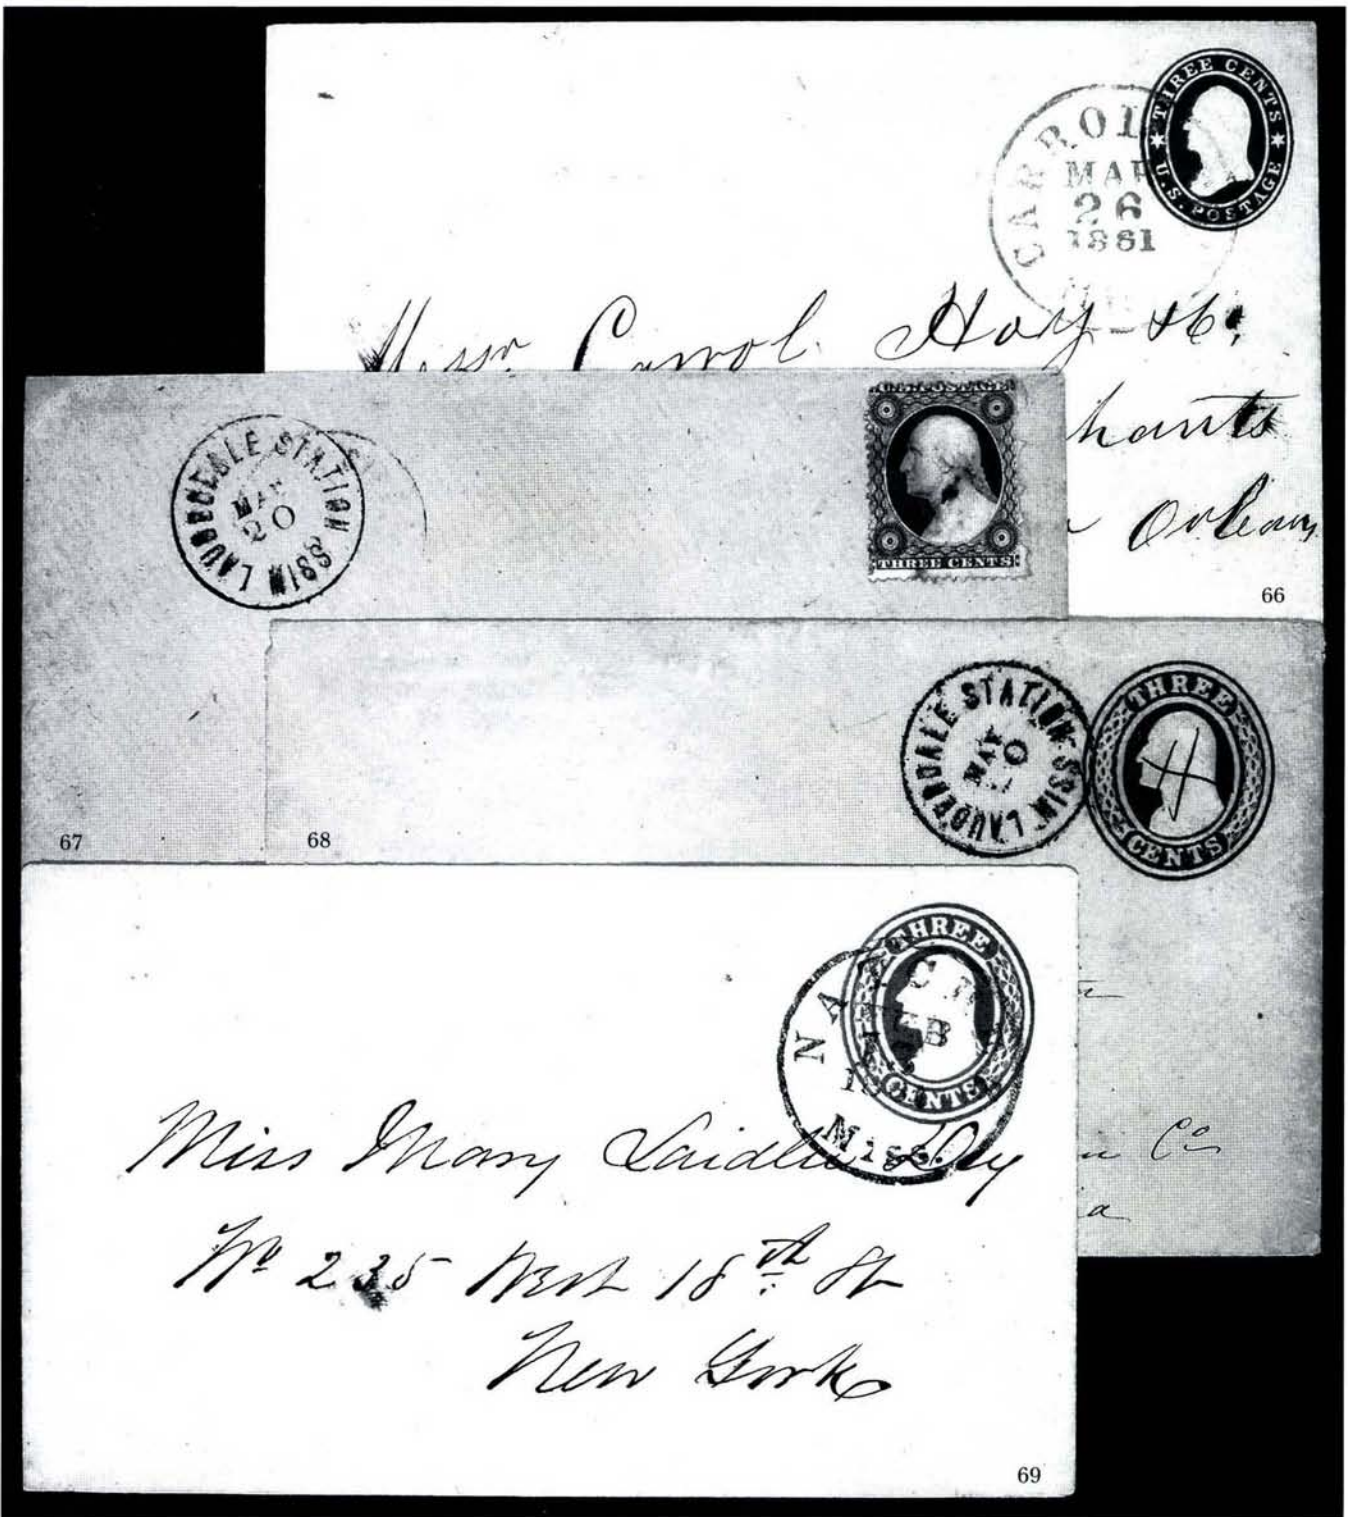 THREE CENTS
U.S. POSTAGE
CARROL
MAR
26
1861
Messrs Carrol Hoy & Co.
hants
Orleans
66
LAUDERDALE STATION MISS
MAY
20
U.S. POSTAGE
THREE CENTS
67
LAUDERDALE STATION MISS
MAY
THREE
CENTS
Co
a
68
THREE
CENTS
NATCHEZ
FEB
Miss.
Miss Mary Laidlie Dey
No 235 West 18th St
New York
69